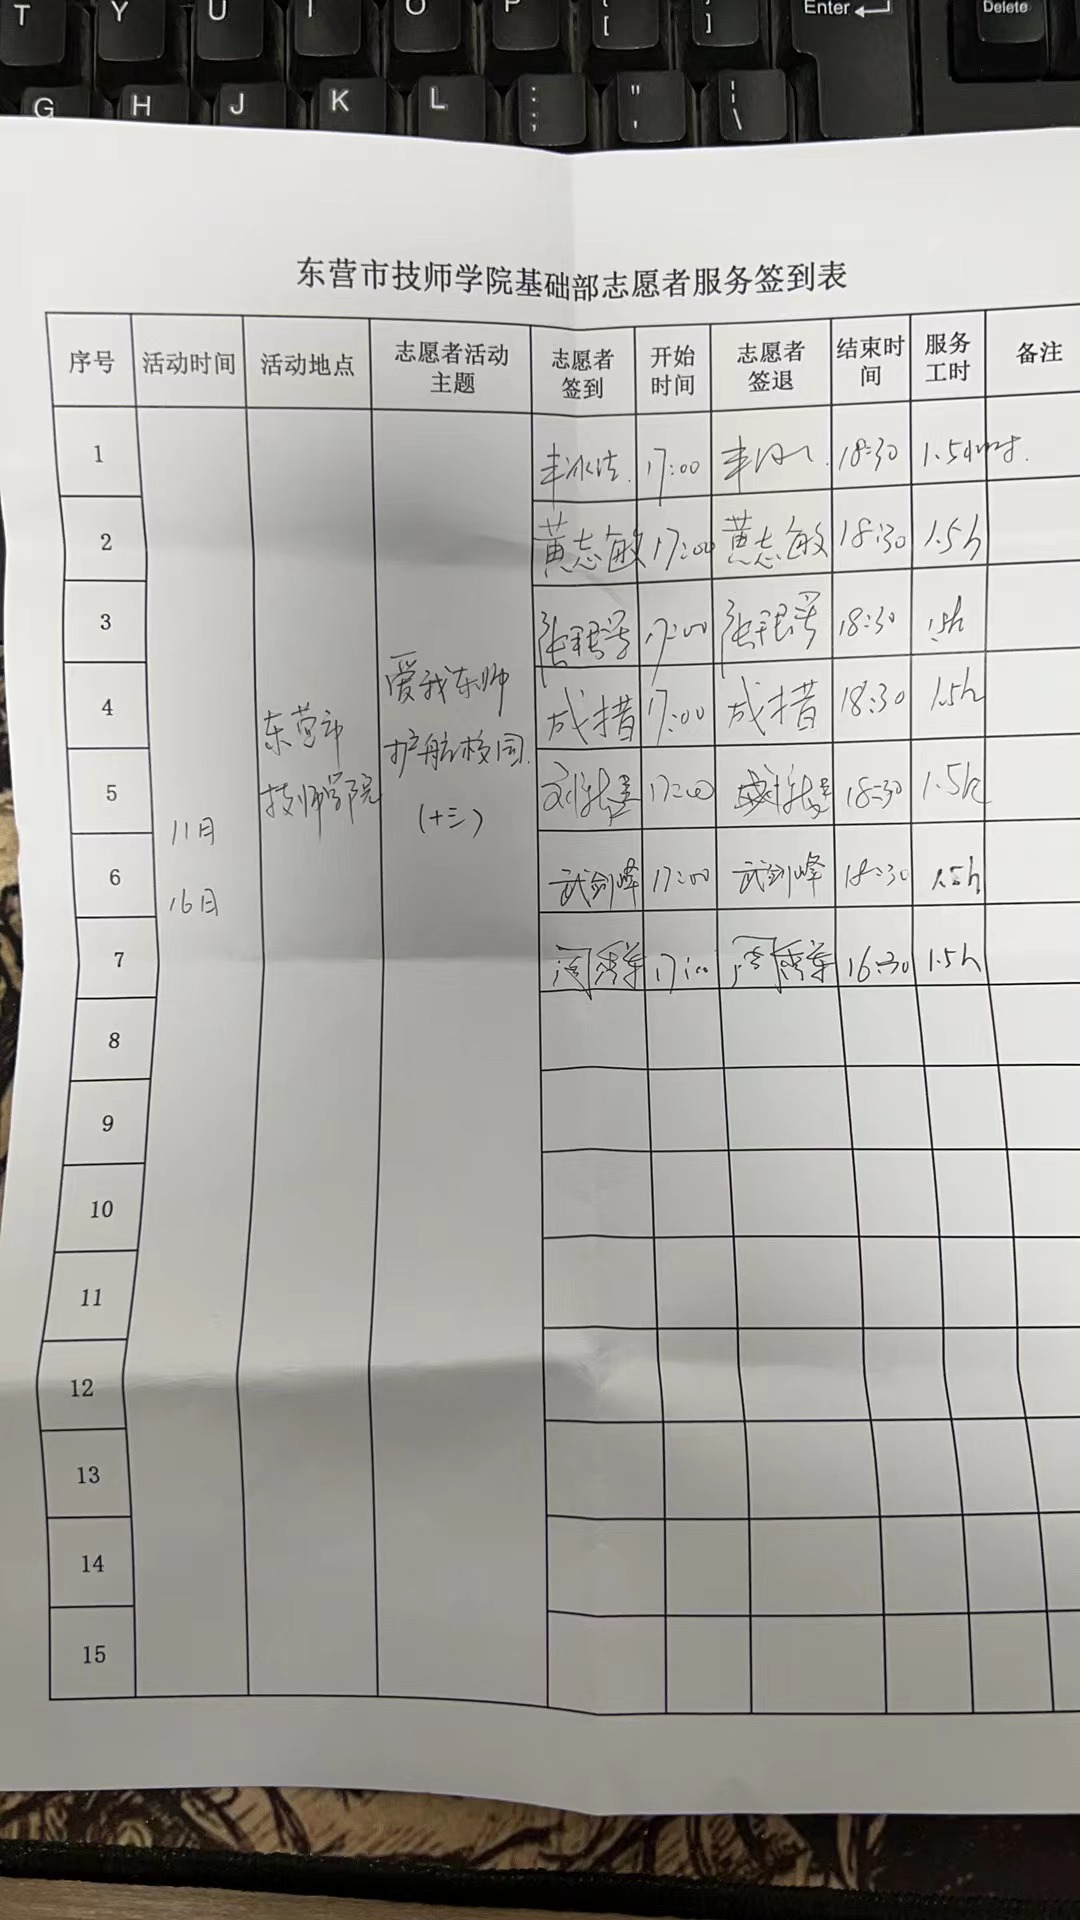 T Y U I O P [ ] Enter Delete
G H J K L : ; " ' | \
东营市技师学院基础部志愿者服务签到表
序号 活动时间 活动地点 志愿者活动主题 志愿者签到 开始时间 志愿者签退 结束时间 服务工时 备注
11月
16日
东营市
技师学院
爱我东师
护航校园.
(十三)
1 17:00 18:30
2 黄志敏 17:00 黄志敏 18:30 1.5h
3 17:00 18:30 1.5h
4 成措 17:00 成措 18:30 1.5h
5 17:00 18:30 1.5h
6 武剑峰 17:00 武剑峰 18:30 1.5h
7 17:00 16:30 1.5h
8
9
10
11
12
13
14
15